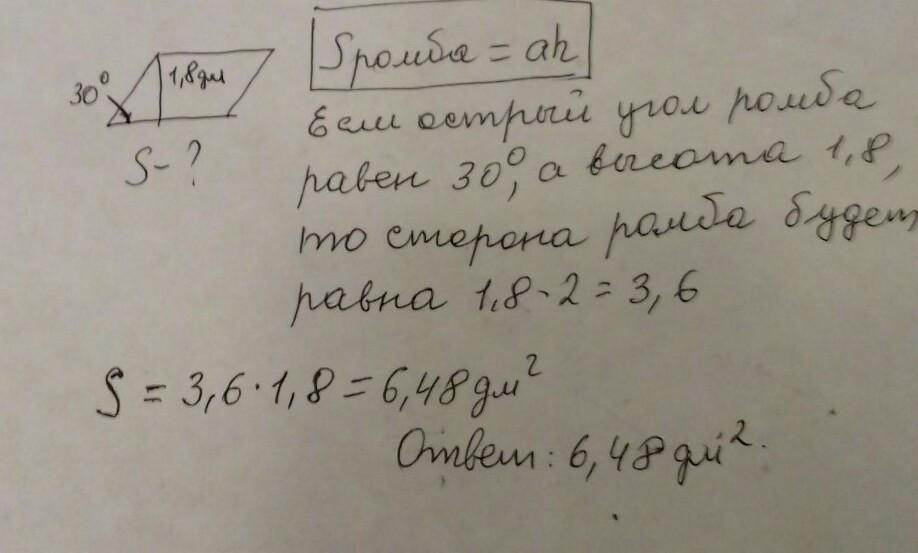 Sромба = ah
30° 1,8дм
S-?
Если острый угол ромба
равен 30°, а высота 1,8,
то сторона ромба будет
равна 1,8·2=3,6
S = 3,6·1,8=6,48дм²
Ответ: 6,48дм².